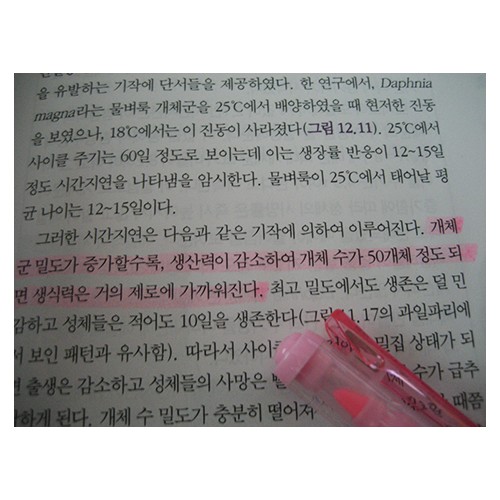 을 유발하는 기작에 단서들을 제공하였다. 한 연구에서, Daphnia
magna라는 물벼룩 개체군을 25℃에서 배양하였을 때 현저한 진동
을 보였으나, 18℃에서는 이 진동이 사라졌다(그림 12.11). 25℃에서
사이클 주기는 60일 정도로 보이는데 이는 생장률 반응이 12~15일
정도 시간지연을 나타냄을 암시한다. 물벼룩이 25℃에서 태어날 평
균 나이는 12~15일이다.
그러한 시간지연은 다음과 같은 기작에 의하여 이루어진다. 개체
군 밀도가 증가할수록, 생산력이 감소하여 개체 수가 50개체 정도 되
면 생식력은 거의 제로에 가까워진다. 최고 밀도에서도 생존은 덜 민
감하고 성체들은 적어도 10일을 생존한다(그림 1.17의 과일파리에
서 보인 패턴과 유사함). 따라서 밀집 상태가 되
면 출생은 감소하고 성체들의 사망은 수가 급추
하게 된다. 개체 수 밀도가 충분히 떨어져 때쯤